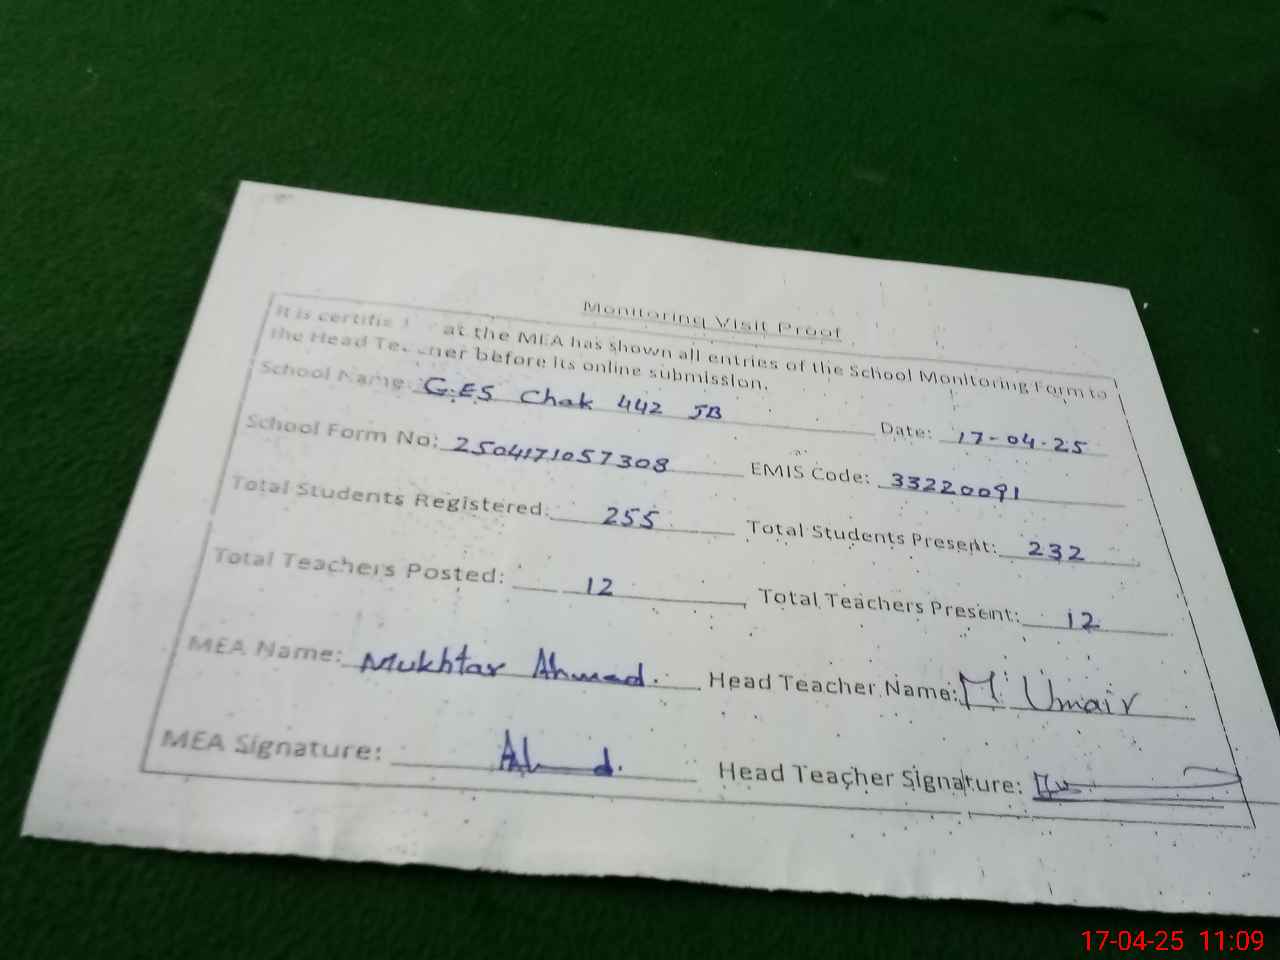 Monitoring Visit Proof
It is certifie at the MEA has shown all entries of the School Monitoring Form to
the Head Te cher before its online submission.
School Name: G.ES Chak 442 JB Date: 17-04-25
School Form No: 2504171057308 EMIS Code: 33220091
Total Students Registered: 255 Total Students Present: 232
Total Teachers Posted: 12 Total Teachers Present: 12
MEA Name: Mukhtar Ahmad. Head Teacher Name: M. Umair
MEA Signature: Head Teacher Signature:
17-04-25 11:09